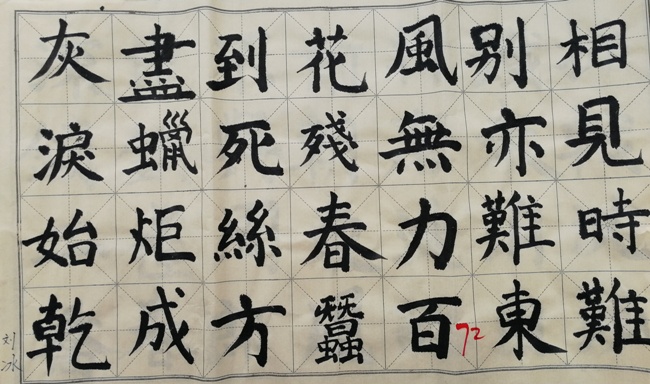 相見時難
别亦難東
風無力百
花殘春蠶
到死絲方
盡蠟炬成
灰淚始乾
72
刘冰